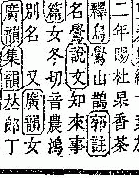 二年賜杜杲香茶
釋鳥鷽山鵲郭註
名鷽說文知來事
篇女冬切音農鴻
別名又廣韻女
廣韻集韻𠀤郎丁